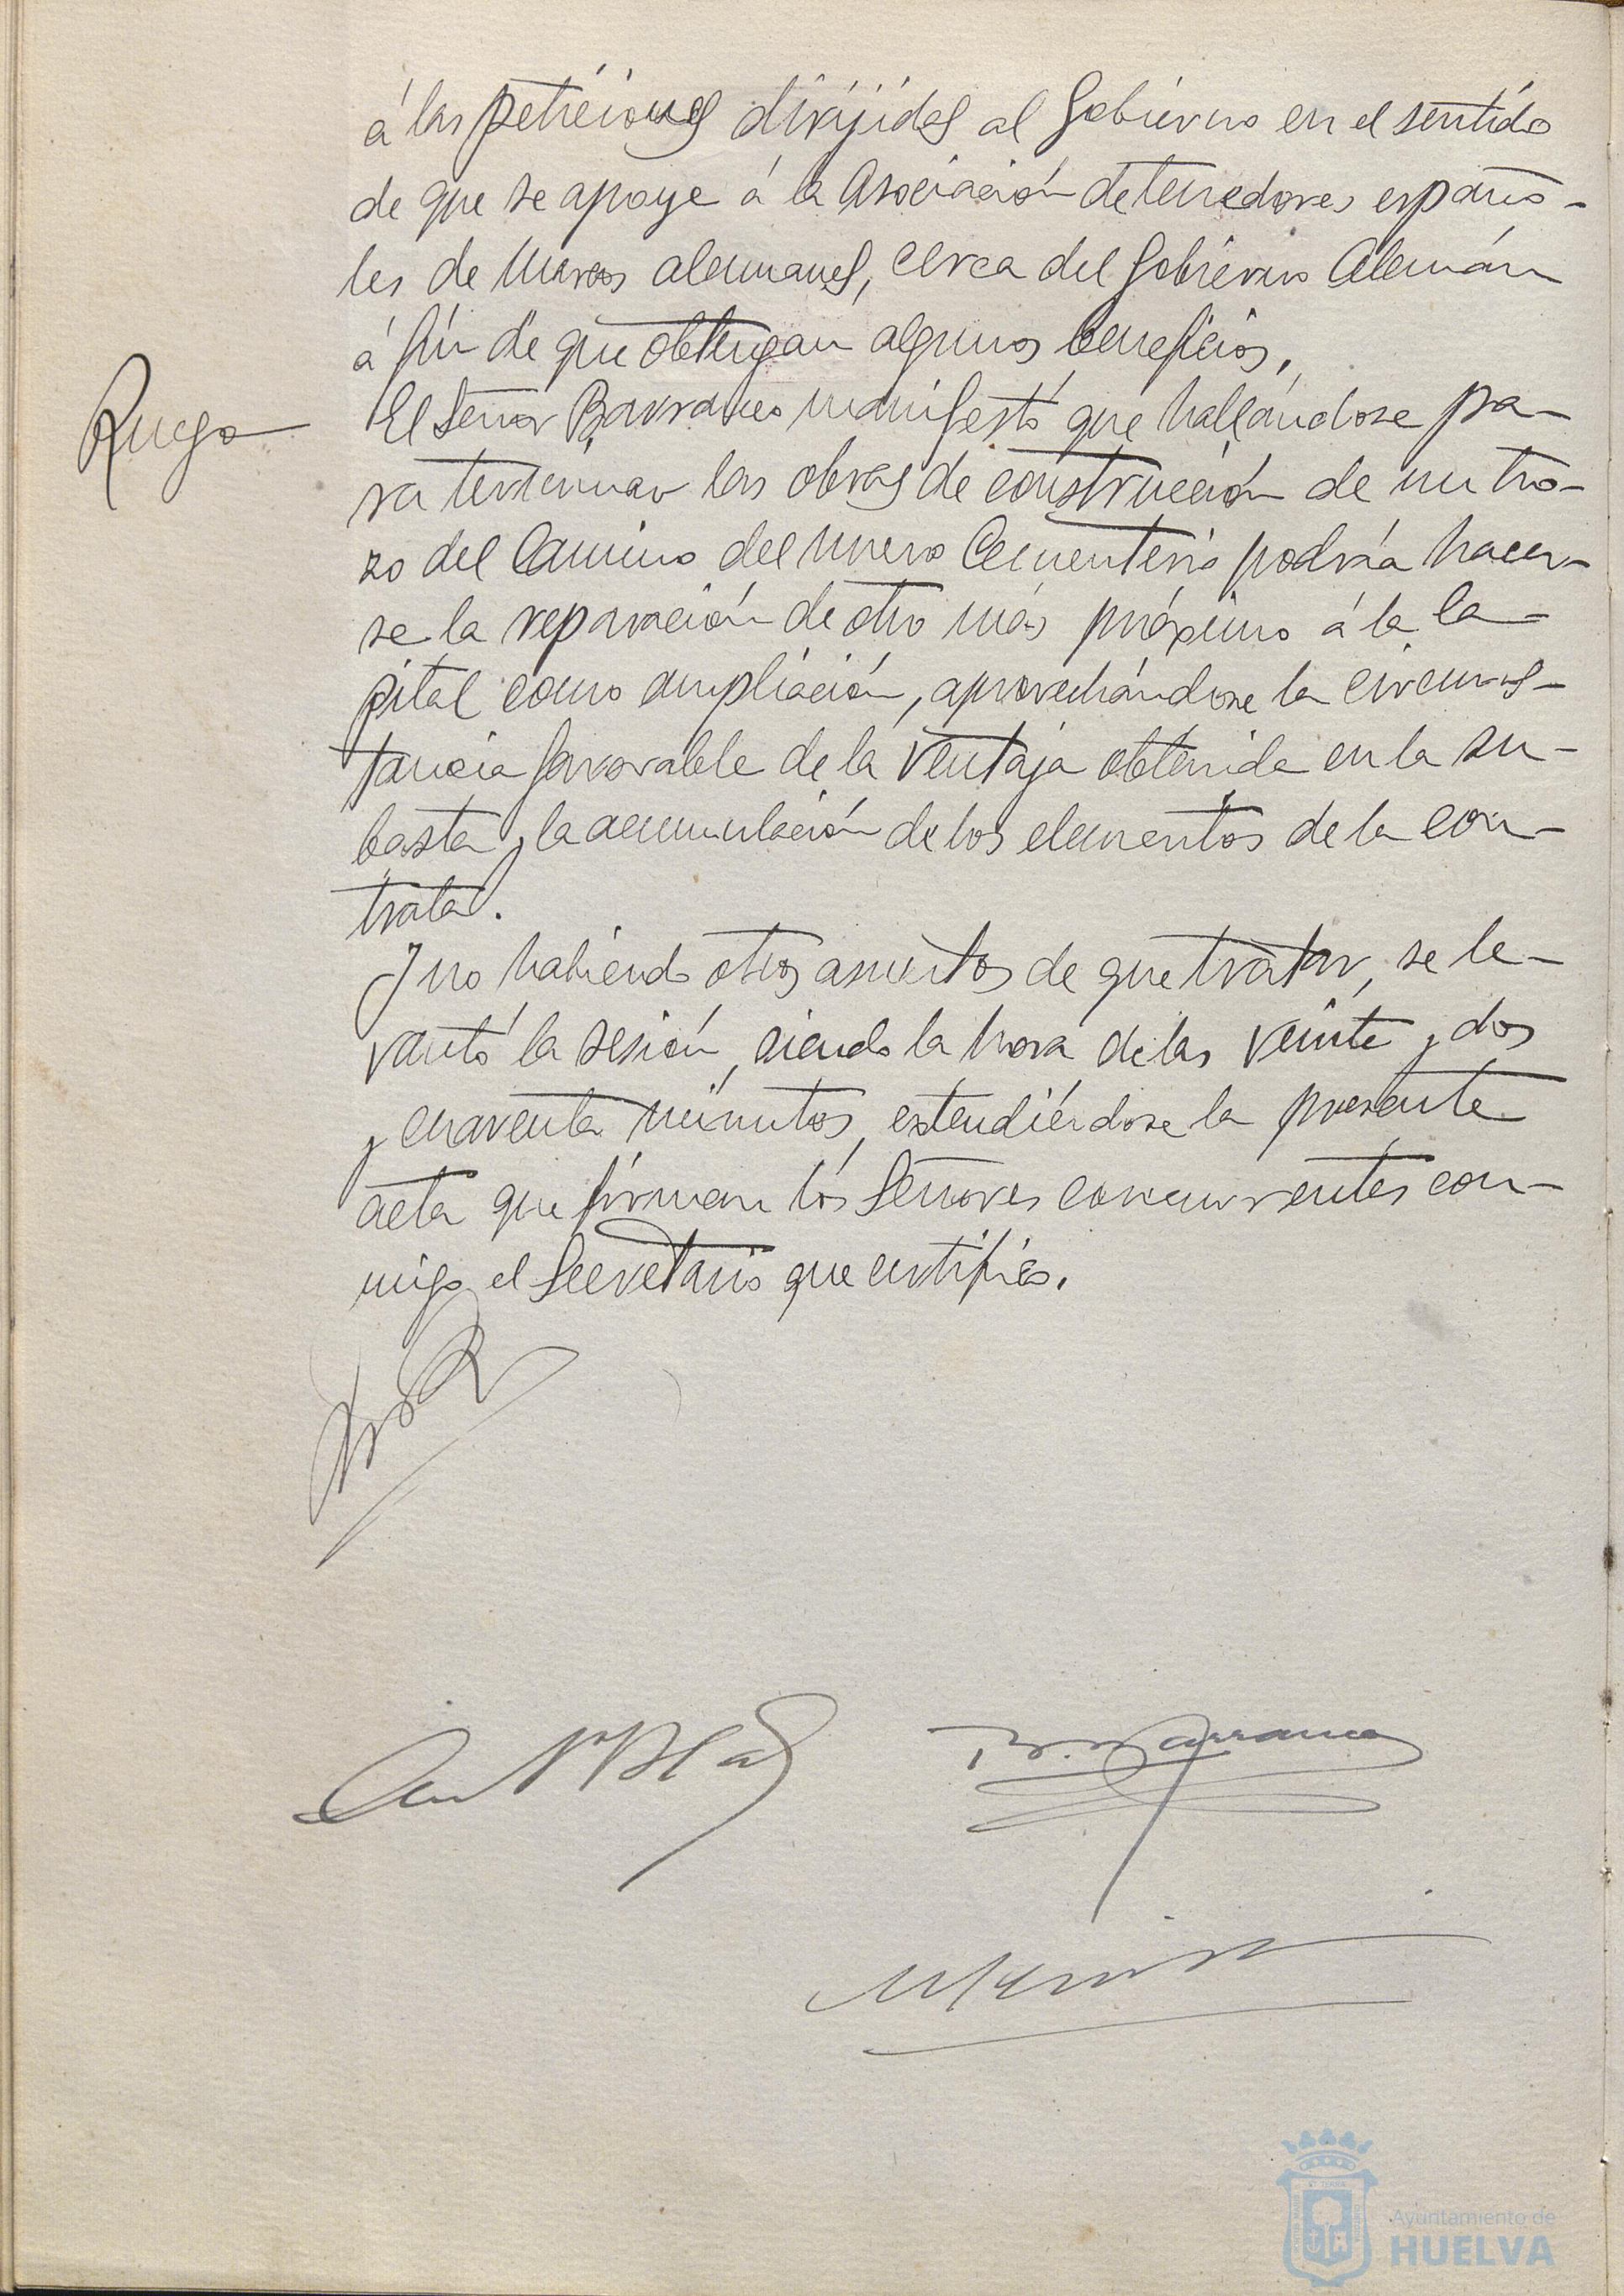 á las peticiones dirijidas al Gobierno en el sentido
de que se apoye á la Asociación de tenedores españo-
les de marcos alemanes, cerca del Gobierno Alemán
á fin de que obtengan algunos beneficios.
Ruego
El Señor Barranco manifestó que hallándose pa-
ra terminar las obras de construcción de un tro-
zo del Camino del nuevo Cementerio podría hacer-
se la reparación de otro más próximo á la Ca-
pital como ampliación, aprovechándose la circuns-
tancia favorable de la ventaja obtenida en la su-
basta y la acumulación de los elementos de la con-
trata.
Y no habiendo otros asuntos de que tratar, se le-
vantó la sesión, siendo la hora de las veinte y dos
y cuarenta minutos, extendiéndose la presente
acta que firman los Señores concurrentes con-
migo el Secretario que certifico.
Barranco
Ayuntamiento de
HUELVA